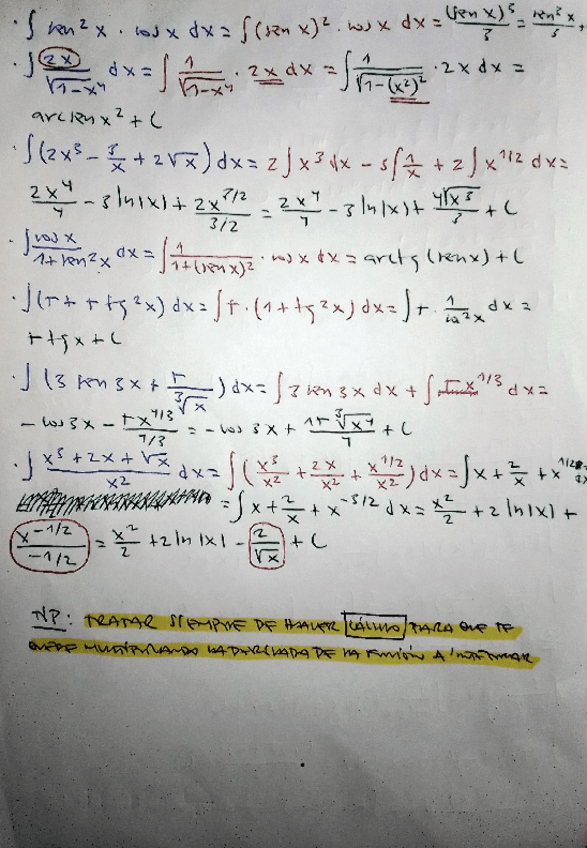 · ∫ sen²x · cos x dx = ∫(sen x)² · cos x dx = (sen x)³/3 = sen³x/3
· ∫ 2x/√(1-x⁴) dx = ∫ 1/√(1-x⁴) · 2x dx = ∫ 1/√(1-(x²)²) · 2x dx =
arcsen x² + C
· ∫(2x³ - 3/x + 2√x) dx = 2∫x³ dx - 3∫1/x + 2∫x^(1/2) dx =
2x⁴/4 - 3 ln|x| + 2x^(3/2)/(3/2) = 2x⁴/4 - 3 ln|x| + 4√x³/3 + C
· ∫ cos x/(1+sen²x) dx = ∫ 1/(1+(sen x)²) · cos x dx = arctg (sen x) + C
· ∫(5 + 5 tg²x) dx = ∫5 · (1 + tg²x) dx = ∫5 · 1/cos²x dx =
5 tg x + C
· ∫(3 sen 3x + 5/∛x) dx = ∫3 sen 3x dx + ∫ x^(1/3) dx =
- cos 3x - 5x^(4/3)/(4/3) = - cos 3x + 15∛x⁴/4 + C
· ∫ (x³ + 2x + √x)/x² dx = ∫(x³/x² + 2x/x² + x^(1/2)/x²) dx = ∫x + 2/x + x
= ∫x + 2/x + x^(-3/2) dx = x²/2 + 2 ln|x| +
x^(-1/2)/(-1/2) = x²/2 + 2 ln|x| - 2/√x + C
NP: TRATAR SIEMPRE DE HACER CÁLCULO PARA QUE TE
QUEDE MULTIPLICANDO LA DERIVADA DE LA FUNCIÓN A INTEGRAR